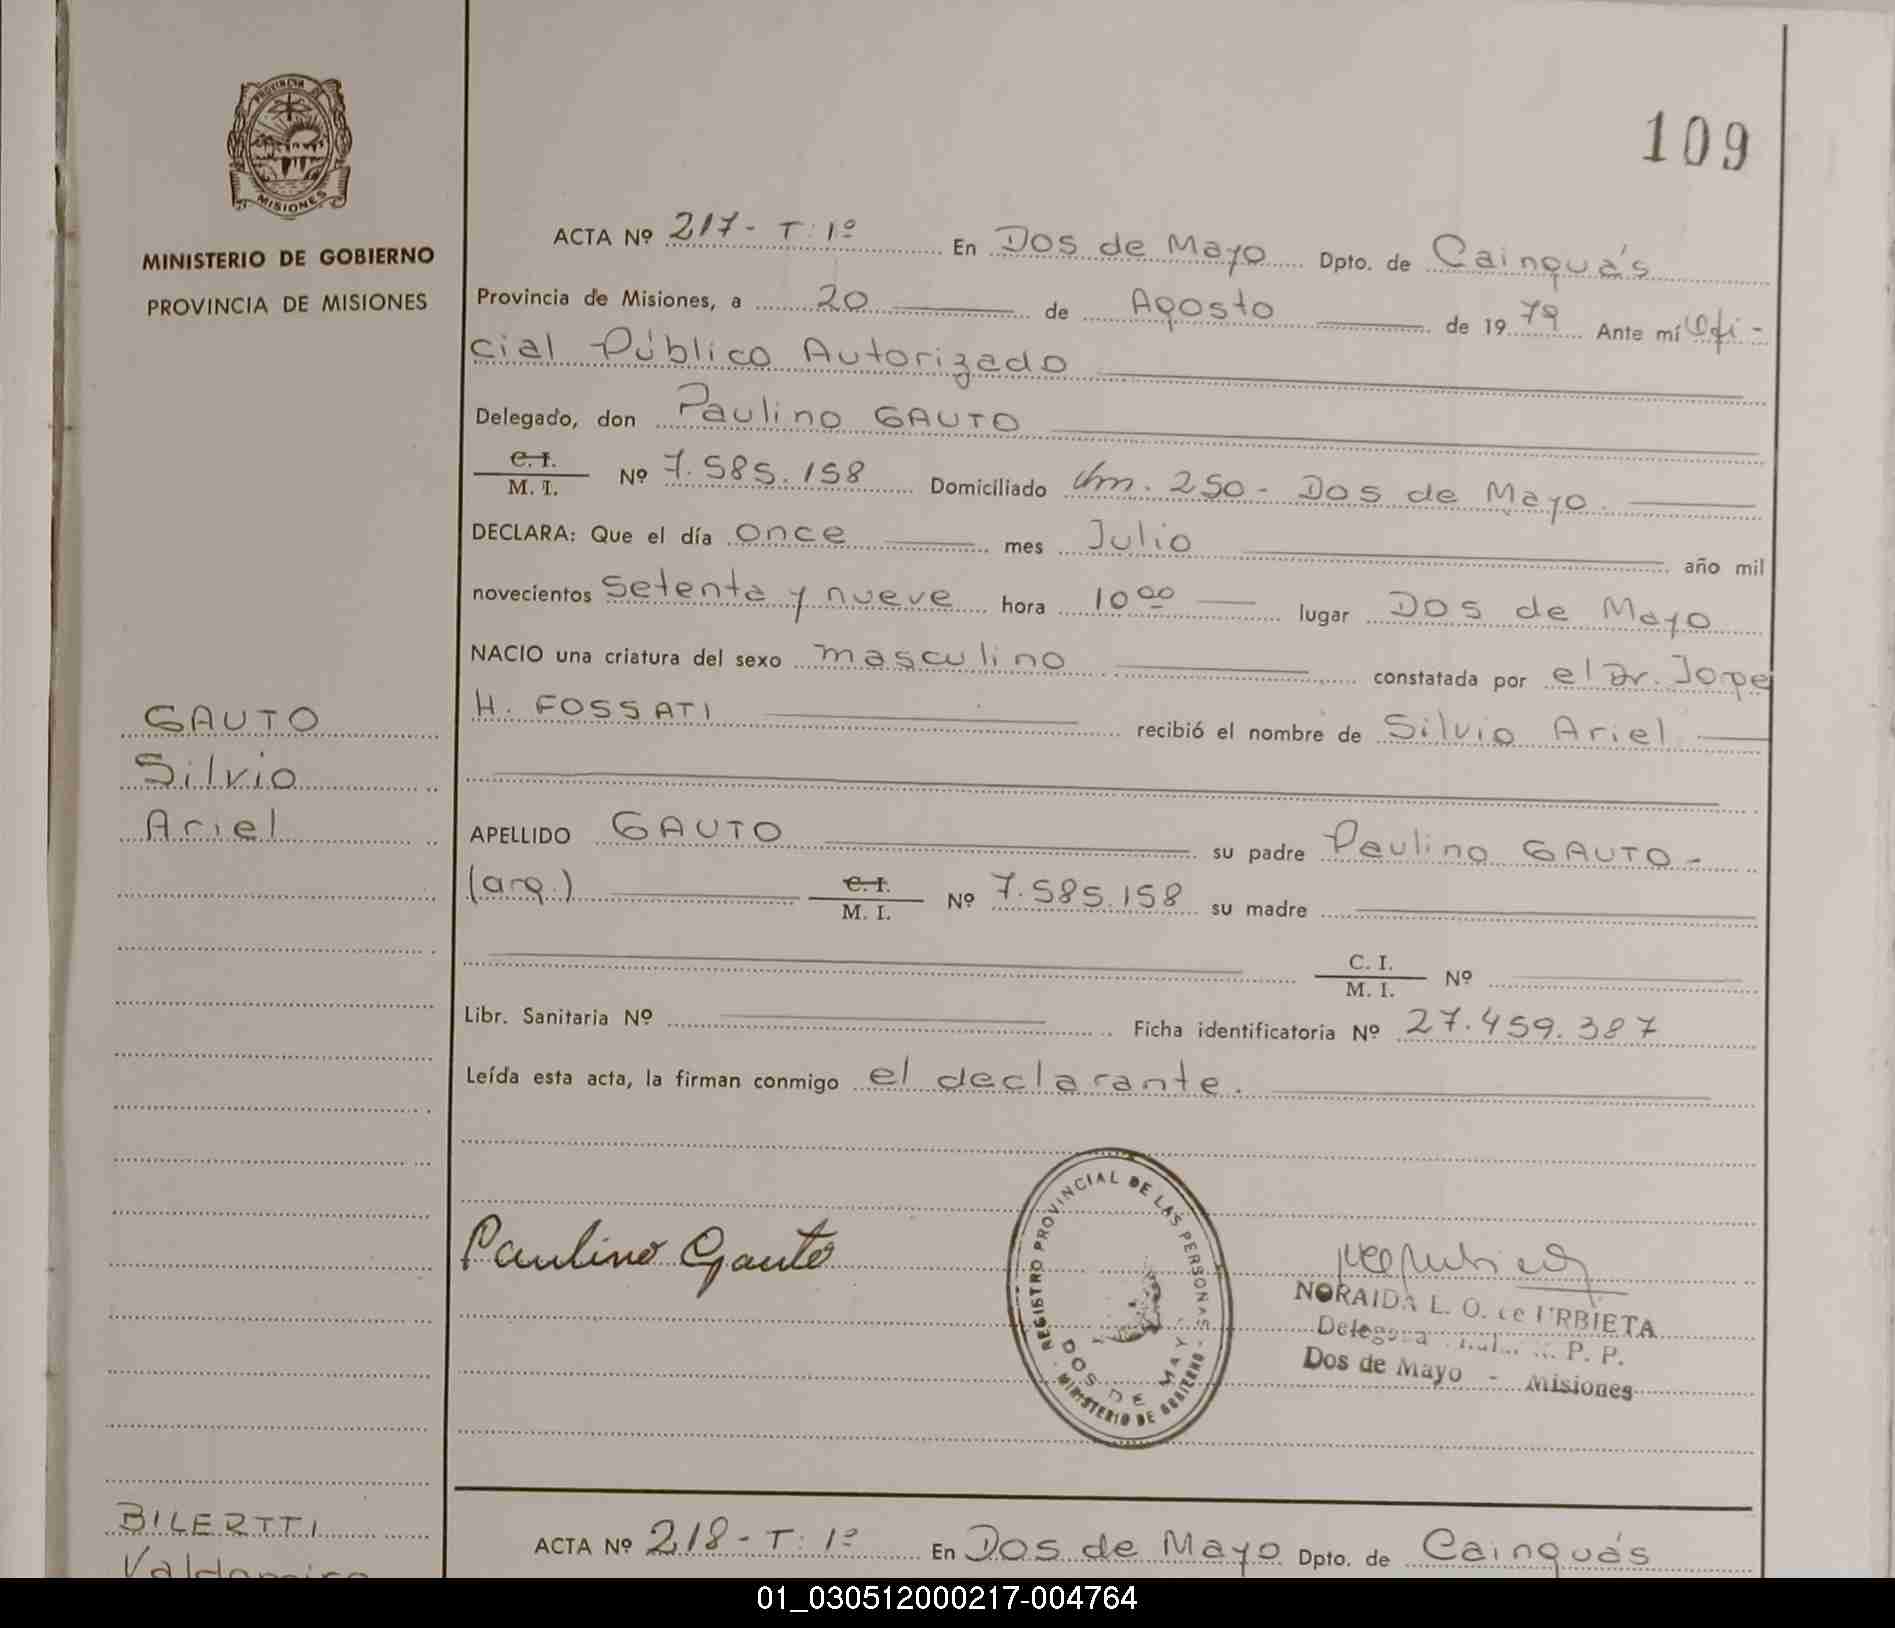 PROVINCIA
MISIONES
MINISTERIO DE GOBIERNO
PROVINCIA DE MISIONES
109
ACTA Nº 217- T: 1º En Dos de Mayo Dpto. de Cainguás
Provincia de Misiones, a 20 de Agosto de 1979 Ante mí Ofi-
cial Público Autorizado
Delegado, don Paulino GAUTO
C. I.
M. I. Nº 7.585.158 Domiciliado Km. 250- Dos de Mayo
DECLARA: Que el día once mes Julio año mil
novecientos setenta y nueve hora 10 00 lugar Dos de Mayo
NACIO una criatura del sexo masculino constatada por el Dr. Jorge
H. FOSSATI recibió el nombre de Silvio Ariel
GAUTO
Silvio
Ariel
APELLIDO GAUTO su padre Paulino GAUTO-
(arg.) C. I.
M. I. Nº 7.585.158 su madre
C. I.
M. I. Nº
Libr. Sanitaria Nº Ficha identificatoria Nº 27.459.387
Leída esta acta, la firman conmigo el declarante.
Paulino Gauto
REGISTRO PROVINCIAL DE LAS PERSONAS
DOS DE MAYO
MINISTERIO DE GOBIERNO
NORAIDA L. O. de URBIETA
P. P.
Dos de Mayo - Misiones
BILERTTI
Valdomiro
ACTA Nº 218- T: 1º En Dos de Mayo Dpto. de Cainguás
01_030512000217-004764